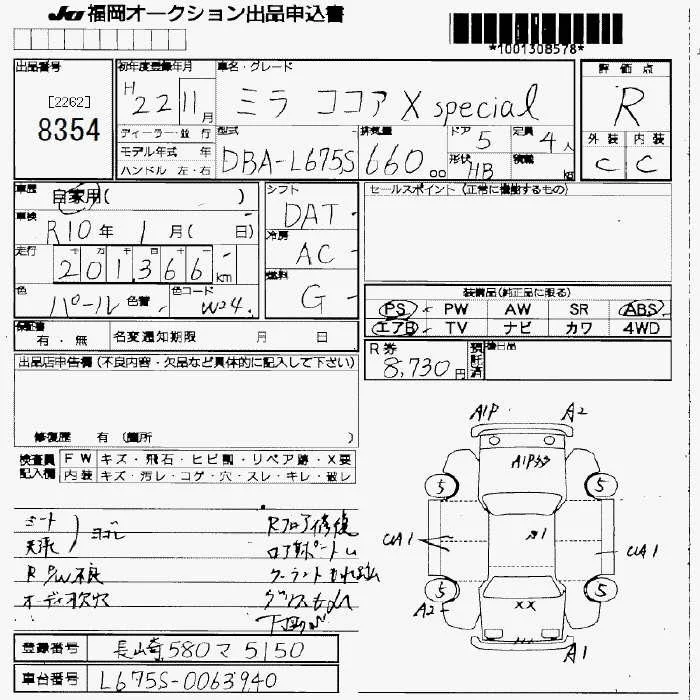 JU 福岡オークション出品申込書
*1001308578*
出品番号
[2262]
8354
初年度登録年月
H 22 11月
車名・グレード
ミラ ココア X special
評価点
R
外装 内装
C C
ディーラー・並行
モデル年式 年
ハンドル 左・右
型式
DBA-L675S
排気量
660 cc
ドア
5
形状
HB
定員
4人
積載
kg
車歴
自家用( )
車検
R10年 1月( 日)
走行
十 万 千 百 十 一
201366 km
色
パール 色替
色コード
W24
シフト
DAT
冷房
AC
燃料
G
セールスポイント (正常に機能するもの)
装備品(純正品に限る)
PS PW AW SR ABS
エアB TV ナビ カワ 4WD
保証書
有・無
名変通知期限 月 日
R券
8,730円
預託済
後日品
出品店申告欄 (不良内容・欠品など具体的に記入して下さい)
修復歴 有 (箇所 )
検査員記入欄
FW キズ・飛石・ヒビ割・リペア跡・X要
内装 キズ・汚レ・コゲ・穴・スレ・キレ・破レ
シート
天張
ヨゴレ
R P/W不良
オーディオ欠穴
Rフロア修復
クーラントもれ
A1P A2
5 5
UA1 UA1
XX
5 5
A2
A1
登録番号
長崎580マ5150
車台番号
L675S-0063940